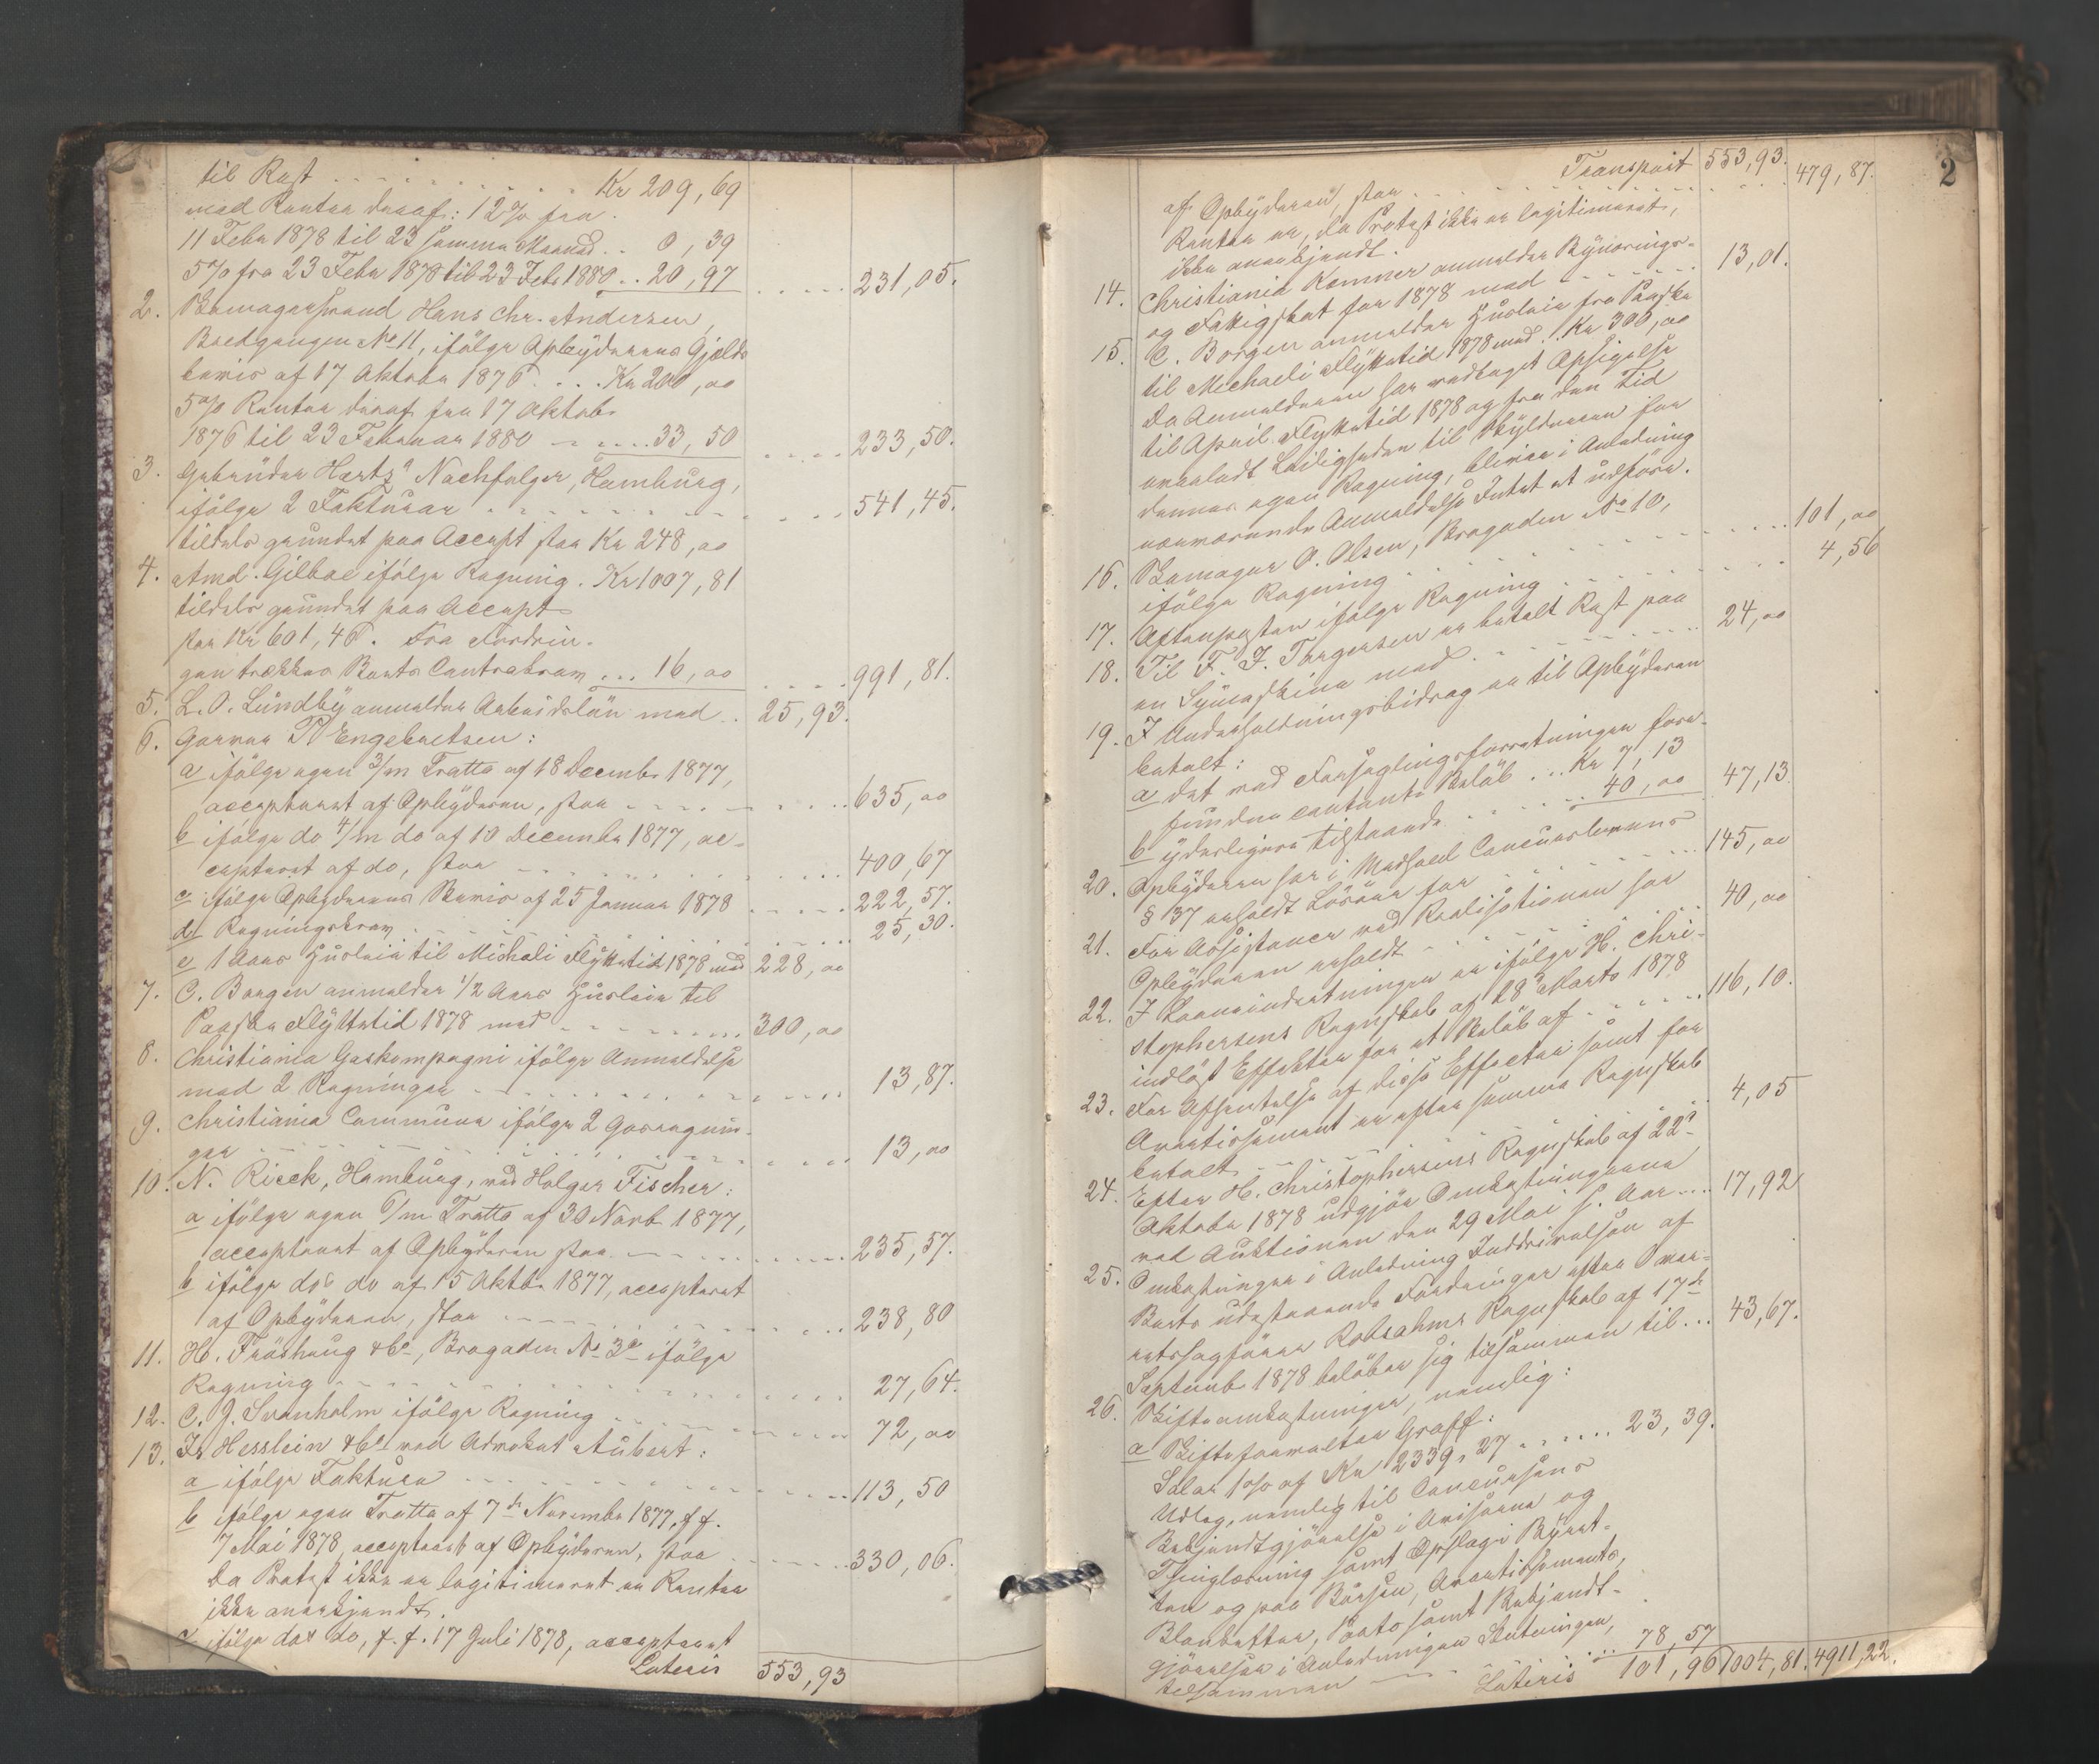 til Rest . . . . . . . . . Kr 209,69
med Renter deraf: 12% fra
11 Febr 1878 til 23 samme Maaned . . 0,39
5% fra 23 Febr 1878 til 23 Febr 1880 . . 20,97 . . . . . 231,05.
2. Skomagersvend Hans Chr. Andersen,
Bredgangen No 11, ifölge Opbyderens Gjelds
bevis af 17 Oktober 1876 . . . . Kr 200,00
5% Renter deraf fra 17 Oktob.
1876 til 23 Februar 1880 - - . . . . 33,50 . . . . . 233,50.
3. Gebrüder Hertz Nachfolger, Hamburg,
ifölge 2 Fakturaer . . . . . . . . . . . 541,45.
tildels grundet paa Accept stor Kr 248,00
4. Amd. Gilboe ifölge Regning . Kr 1007,81
tildels grundet paa Accept
stor Kr 601,46. Fra Fordrin-
gen trækkes Boets Contrakrav . . . 16,00 . . . . 991,81.
5. L. O. Lundby anmelder Arbeidslön med . . 25,93.
6. Garver P Engebretsen:
a ifölge egen 3/m Tratte af 18 Decembr 1877,
accepteret af Opbyderen, stor - - - - . . . 635,00
b ifölge do 4/m do af 10 December 1877, ac-
cepteret af do, stor - - - . . . . . . . 400,67
c ifölge Opbyderens Bevis af 25 Januar 1878 . . . . . 222,57.
d Regningskrav . . . . . . . . . . 25,30.
e 1 Aars Husleie til Michæli Flyttetid 1878 med 228,00
7. C. Borgen anmelder 1/2 Aars Husleie til
Paaske Flyttetid 1878 med - - - - . . . . . 300,00
8. Christiania Gaskompagni ifölge Anmeldelse
med 2 Regninger - - . . . . . . . . 13,87.
9. Christiania Commune ifölge 2 Gasregnin-
ger . . . . . . . . . . . . . 13,00
10. N. Rieck, Hamburg, ved Holger Fischer:
a ifölge egen 6/m Tratte af 30 Novb. 1877,
accepteret af Opbyderen stor - - - . . . . . 235,57.
b ifölge do do af 15 Oktbr 1877, accepteret
af Opbyderen, stor - - - . . . . . . . 238,80
11. H. Fröshaug & Co, Brogaden No 3 ifölge
Regning . . . . . . . . . . . 27,64.
12. C. J. Svanholm ifölge Regning . . . . . . . 72,00
13. Is. Hesslein & Co ved Advokat Aubert:
a ifölge Faktura . . . . . . . . . . 113,50
b ifölge egen Tratte af 7de November 1877, f.f.
7 Mai 1878, accepteret af Opbyderen, stor . . . . . . 330,06.
da Protest ikke er legitimeret er Renter
ikke anerkjendt.
c ifölge do do, f.f. 17 Juli 1878, accepteret
Lateris 553,93
2
Transport 553,93. 479,87.
af Opbyderen, stor . . . . . . . . . .
Renter er, da Protest ikke er legitimeret,
ikke anerkjendt.
14. Christiania Kemner anmelder Bynærings-
og Fattigskat for 1878 med . . . . . . . 13,01.
15. C. Borgen anmelder Husleie fra Paaske
til Michaeli Flyttetid 1878 med . . Kr 300,00
Da Anmelderen har modtaget Opsigelse
til April Flyttetid 1878 og fra den Tid
overladt Leiligheden til Skyldneren for
dennes egen Regning, bliver i Anledning
nærværende Anmeldelse Intet at udföre.
16. Skomager O. Olsen, Brogaden No 10,
ifölge Regning . . . . . . . . . . . . 101,00
17. Aftenposten ifölge Regning . . . . . . . . 4,56
18. Til F. J. Torgersen er betalt Rest paa
en Symaskine med . . . . . . . . . 24,00
19. I Underholdningsbidrag er til Opbyderen
betalt:
a det ved Forseglingsforretningen fore-
fundne contante Beløb . . . Kr 7,13
b yderligere tilstaaede . . . . . . . 40,00 47,13.
20. Opbyderen har i Medhold Concurslovens
§ 37 erholdt Lösöre for . . . . . . . . 145,00
21. For Assistance ved Realisationen har
Opbyderen erholdt . . . . . . . . 40,00
22. I Laaneindretningen er ifölge H. Chri-
stophersens Regnskab af 18de Marts 1878
indlöst Effekter for et Belöb af . . . . . . 116,10.
23. For Afhentelse af disse Effecter samt for
Avertissement er efter samme Regnskab
betalt . . . . . . . . . . 4,05
24. Efter H. Christophersens Regnskab af 22de
Oktober 1878 udgjör Omkostningerne
ved Auktionen den 29 Mai s. Aar . . . . 17,92
25. Omkostninger i Anledning Inddrivelsen af
Boets udestaaende Fordringer efter Over-
retssagförer Robsahms Regnskab af 17de
Septemb. 1878 belöber sig tilsammen til . . . 43,67.
26. Skifteomkostninger, nemlig:
a Skifteforvalter Graff:
Salær 1% af Kr 2339,27 . . . . . . 23,39.
Udlæg, nemlig til Concursens
Bekjendtgjörelse i Aviserne og
Thinglæsning samt Opslag i Byret-
ten og paa Börsen, Avertissements,
Blanketter, Porto samt Bekjendt-
gjörelser i Anledningen Slutningen,
tilsammen - - - . . . . 78,57
Lateris 101,96 1004,81. 4911,22.